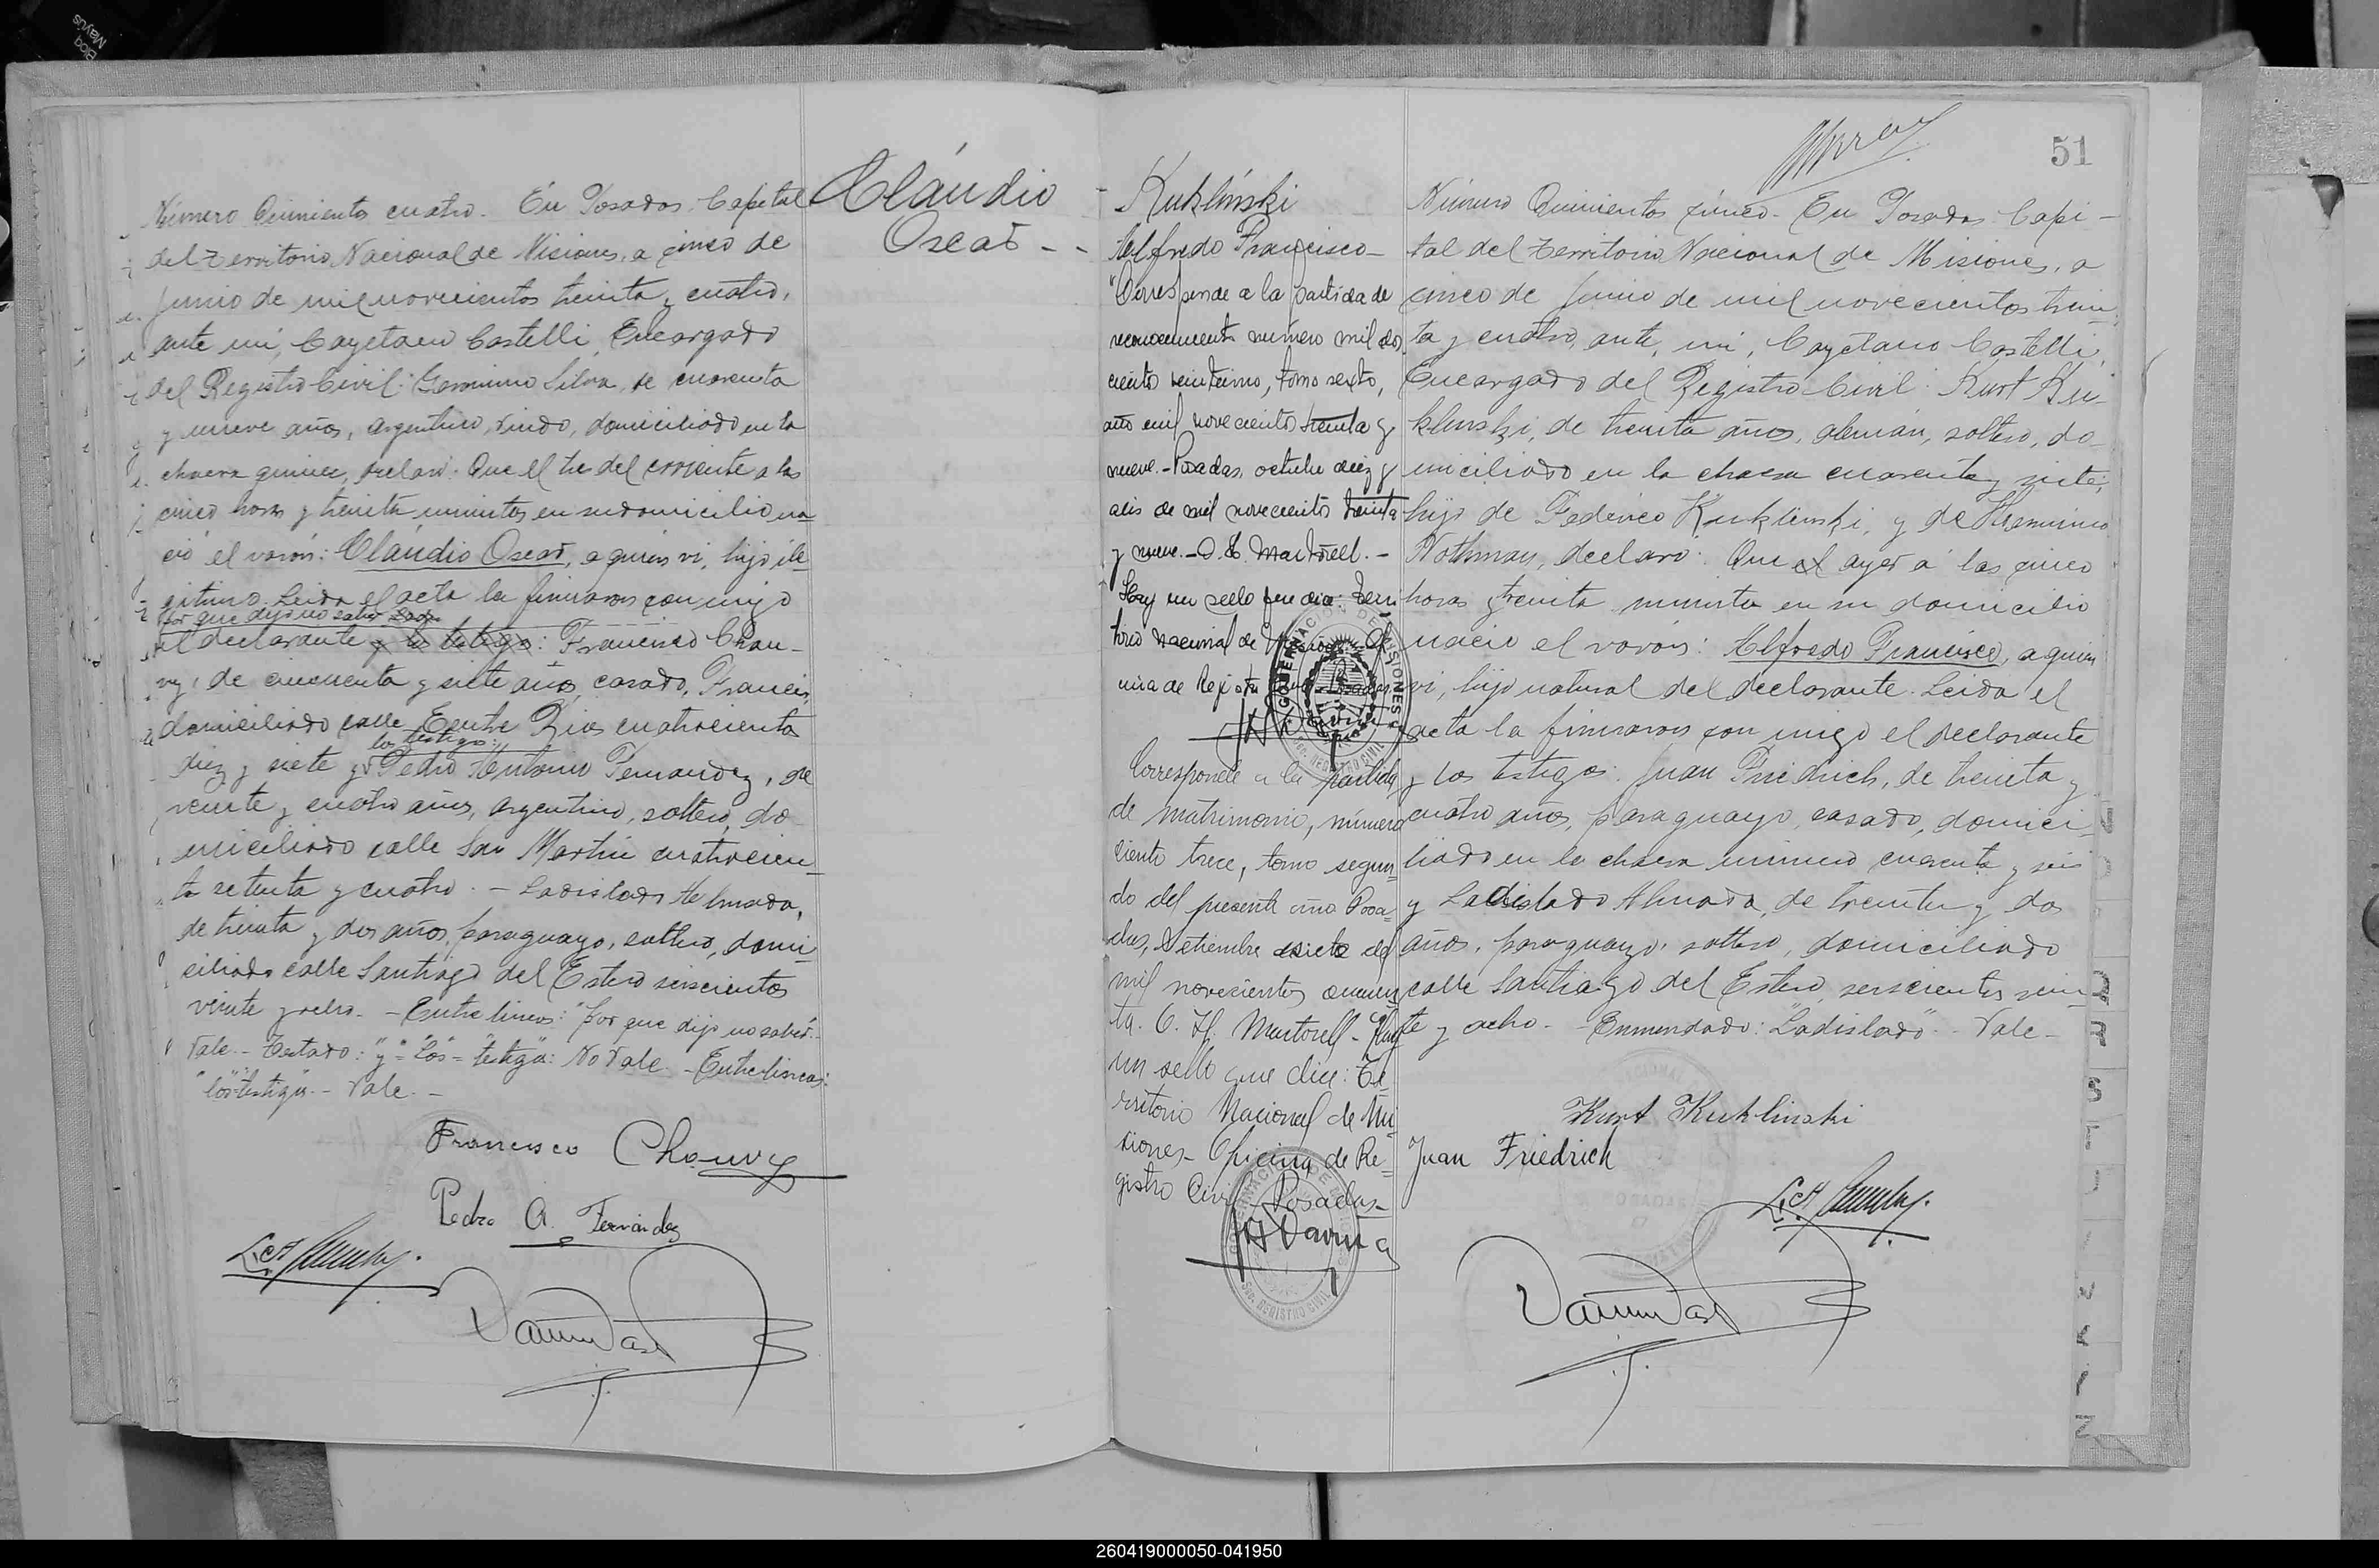 Bloq
Mayús
Número Quinientos cuatro. En Posadas, Capital
del Territorio Nacional de Misiones, a cinco de
Junio de mil novecientos treinta y cuatro,
ante mí, Cayetano Castelli, Encargado
del Registro Civil: Geronimo Silva, de cuarenta
y nueve años, argentino, viudo, domiciliado en la
chacra quince, declaró: Que el tres del corriente a las
cinco horas y treinta minutos en su domicilio na-
ció el varón: Claudio Oscar, a quien vi, hijo ile-
gitimo. Leida el acta la firmaron conmigo
por que dijo no saber
el declarante y los testigos: Francisco Chau-
vy, de cincuenta y siete años, casado, Francés,
domiciliado calle Entre Rios cuatrocientos
los testigos:
diez y siete y Pedro Antonio Fernandez, de
veinte y cuatro años, argentino, soltero, do-
miciliado calle San Martín cuatrocien-
tos setenta y cuatro. - Ladislado Almada,
de treinta y dos años, paraguayo, soltero, domi-
ciliado calle Santiago del Estero seiscientos
veinte y ocho. - Entre lineas: "por que dijo no saber".
Vale. - Testado: "y" = "los" = "testigos": No Vale. - Entrelineas:
"los testigos". - Vale. -
Francisco Chauvy
Pedro A. Fernández
Claudio
Oscar - -
Kuklinski
Alfredo Francisco -
"Corresponde a la partida de
reconocimiento número mil dos
ciento veintiuno, tomo sexto,
año mil novecientos treinta y
nueve. - Posadas, octubre diez y
seis de mil novecientos treinta
y nueve. - O. H. Martorell. -
Hay un sello que dice: Terri
torio Nacional de Misiones. Ofi
cina de Registro Civil - Posadas
GOBERNACION DE MISIONES
SEC. REGISTRO CIVIL
Corresponde a la partida
de matrimonio, número
ciento trece, tomo segun-
do del presente año Posa-
das, Setiembre siete de
mil novecientos cuaren
ta. O. H. Martorell - Hay
un sello que dice: Te-
rritorio Nacional de Mi-
siones - Oficina de Re-
gistro Civil Posadas -
SEC. REGISTRO CIVIL
51
Número Quinientos cinco - En Posadas Capi-
tal del Territorio Nacional de Misiones, a
cinco de Junio de mil novecientos trein-
ta y cuatro, ante, mi, Cayetano Castelli,
Encargado del Registro Civil: Kurt Ku-
klinski, de treinta años, alemán, soltero, do-
miciliado en la chacra cuarenta y siete;
hijo de Federico Kuklinski, y de Herminia
Nothman, declaró: Que el ayer a las cinco
horas y treinta minutos en su domicilio
nacio el varón: Alfredo Francisco, a quien
vi, hijo natural del declarante. Leida el
acta la firmaron con migo el declarante
y los testigos: Juan Friedrich, de treinta y
cuatro años, paraguayo, casado, domici-
liado en la chacra número cuarenta y seis
y Ladislado Almada, de treinta y dos
años, paraguayo, soltero, domiciliado
calle Santiago del Estero, seiscientos vein-
te y ocho. - Enmendado: "Ladislado". - Vale -
Kurt Kuklinski
Juan Friedrich
260419000050-041950